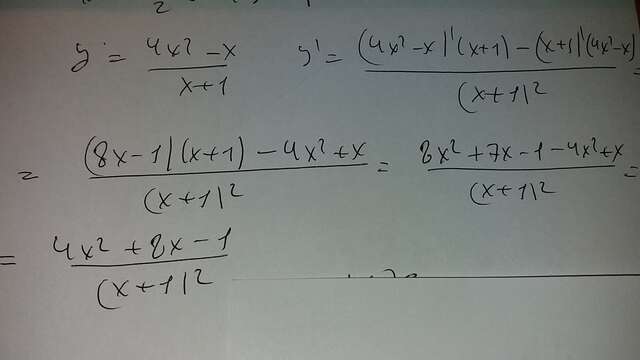 y' = (4x² - x)/(x+1)   y' = ((4x² - x)'(x+1) - (x+1)'(4x² - x))/(x+1)²
= ((8x - 1)(x+1) - 4x² + x)/(x+1)² = (8x² + 7x - 1 - 4x² + x)/(x+1)² =
= (4x² + 8x - 1)/(x+1)²